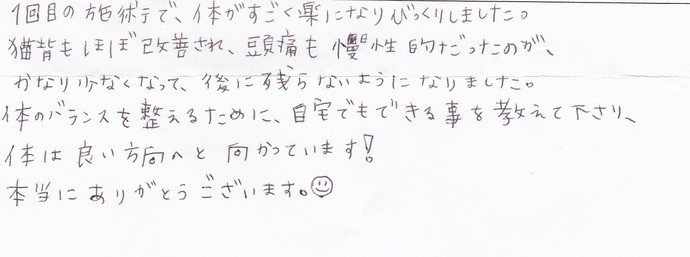 1回目の施術で、体がすごく楽になりびっくりしました。
猫背もほぼ改善され、頭痛も慢性的だったのが、
かなり少なくなって、後に残らないようになりました。
体のバランスを整えるために、自宅でもできる事を教えて下さり、
体は良い方向へと向かっています!
本当にありがとうございます。☺